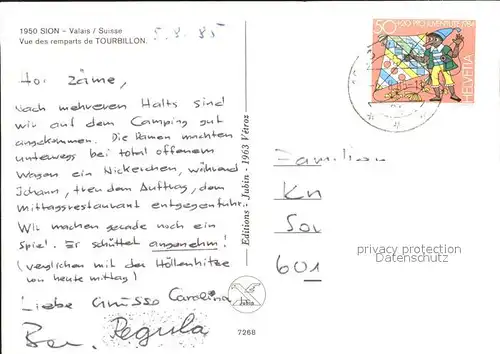 1950 SION - Valais / Suisse
Vue des remparts de TOURBILLON.
5.8.85
Hoi zäme,
Nach mehreren Halts sind
wir auf dem Camping gut
angekommen. Die Damen machten
unterwegs bei total offenem
Wagen ein Nickerchen, während
Johann, treu dem Auftrag, dem
Mittagsrestaurant entgegenfuhr.
Wir machen gerade noch ein
Spiel. Er schüttet angenehm!
(verglichen mit der Höllenhitze
von heute mittag)
Liebe Grüsse Carolina
Regula
Editions - Jubin - 1963 Vétroz
Jubin
7268
50+20 PRO JUVENTUTE 1984
HELVETIA
Familien
Kn
601
privacy protection
Datenschutz